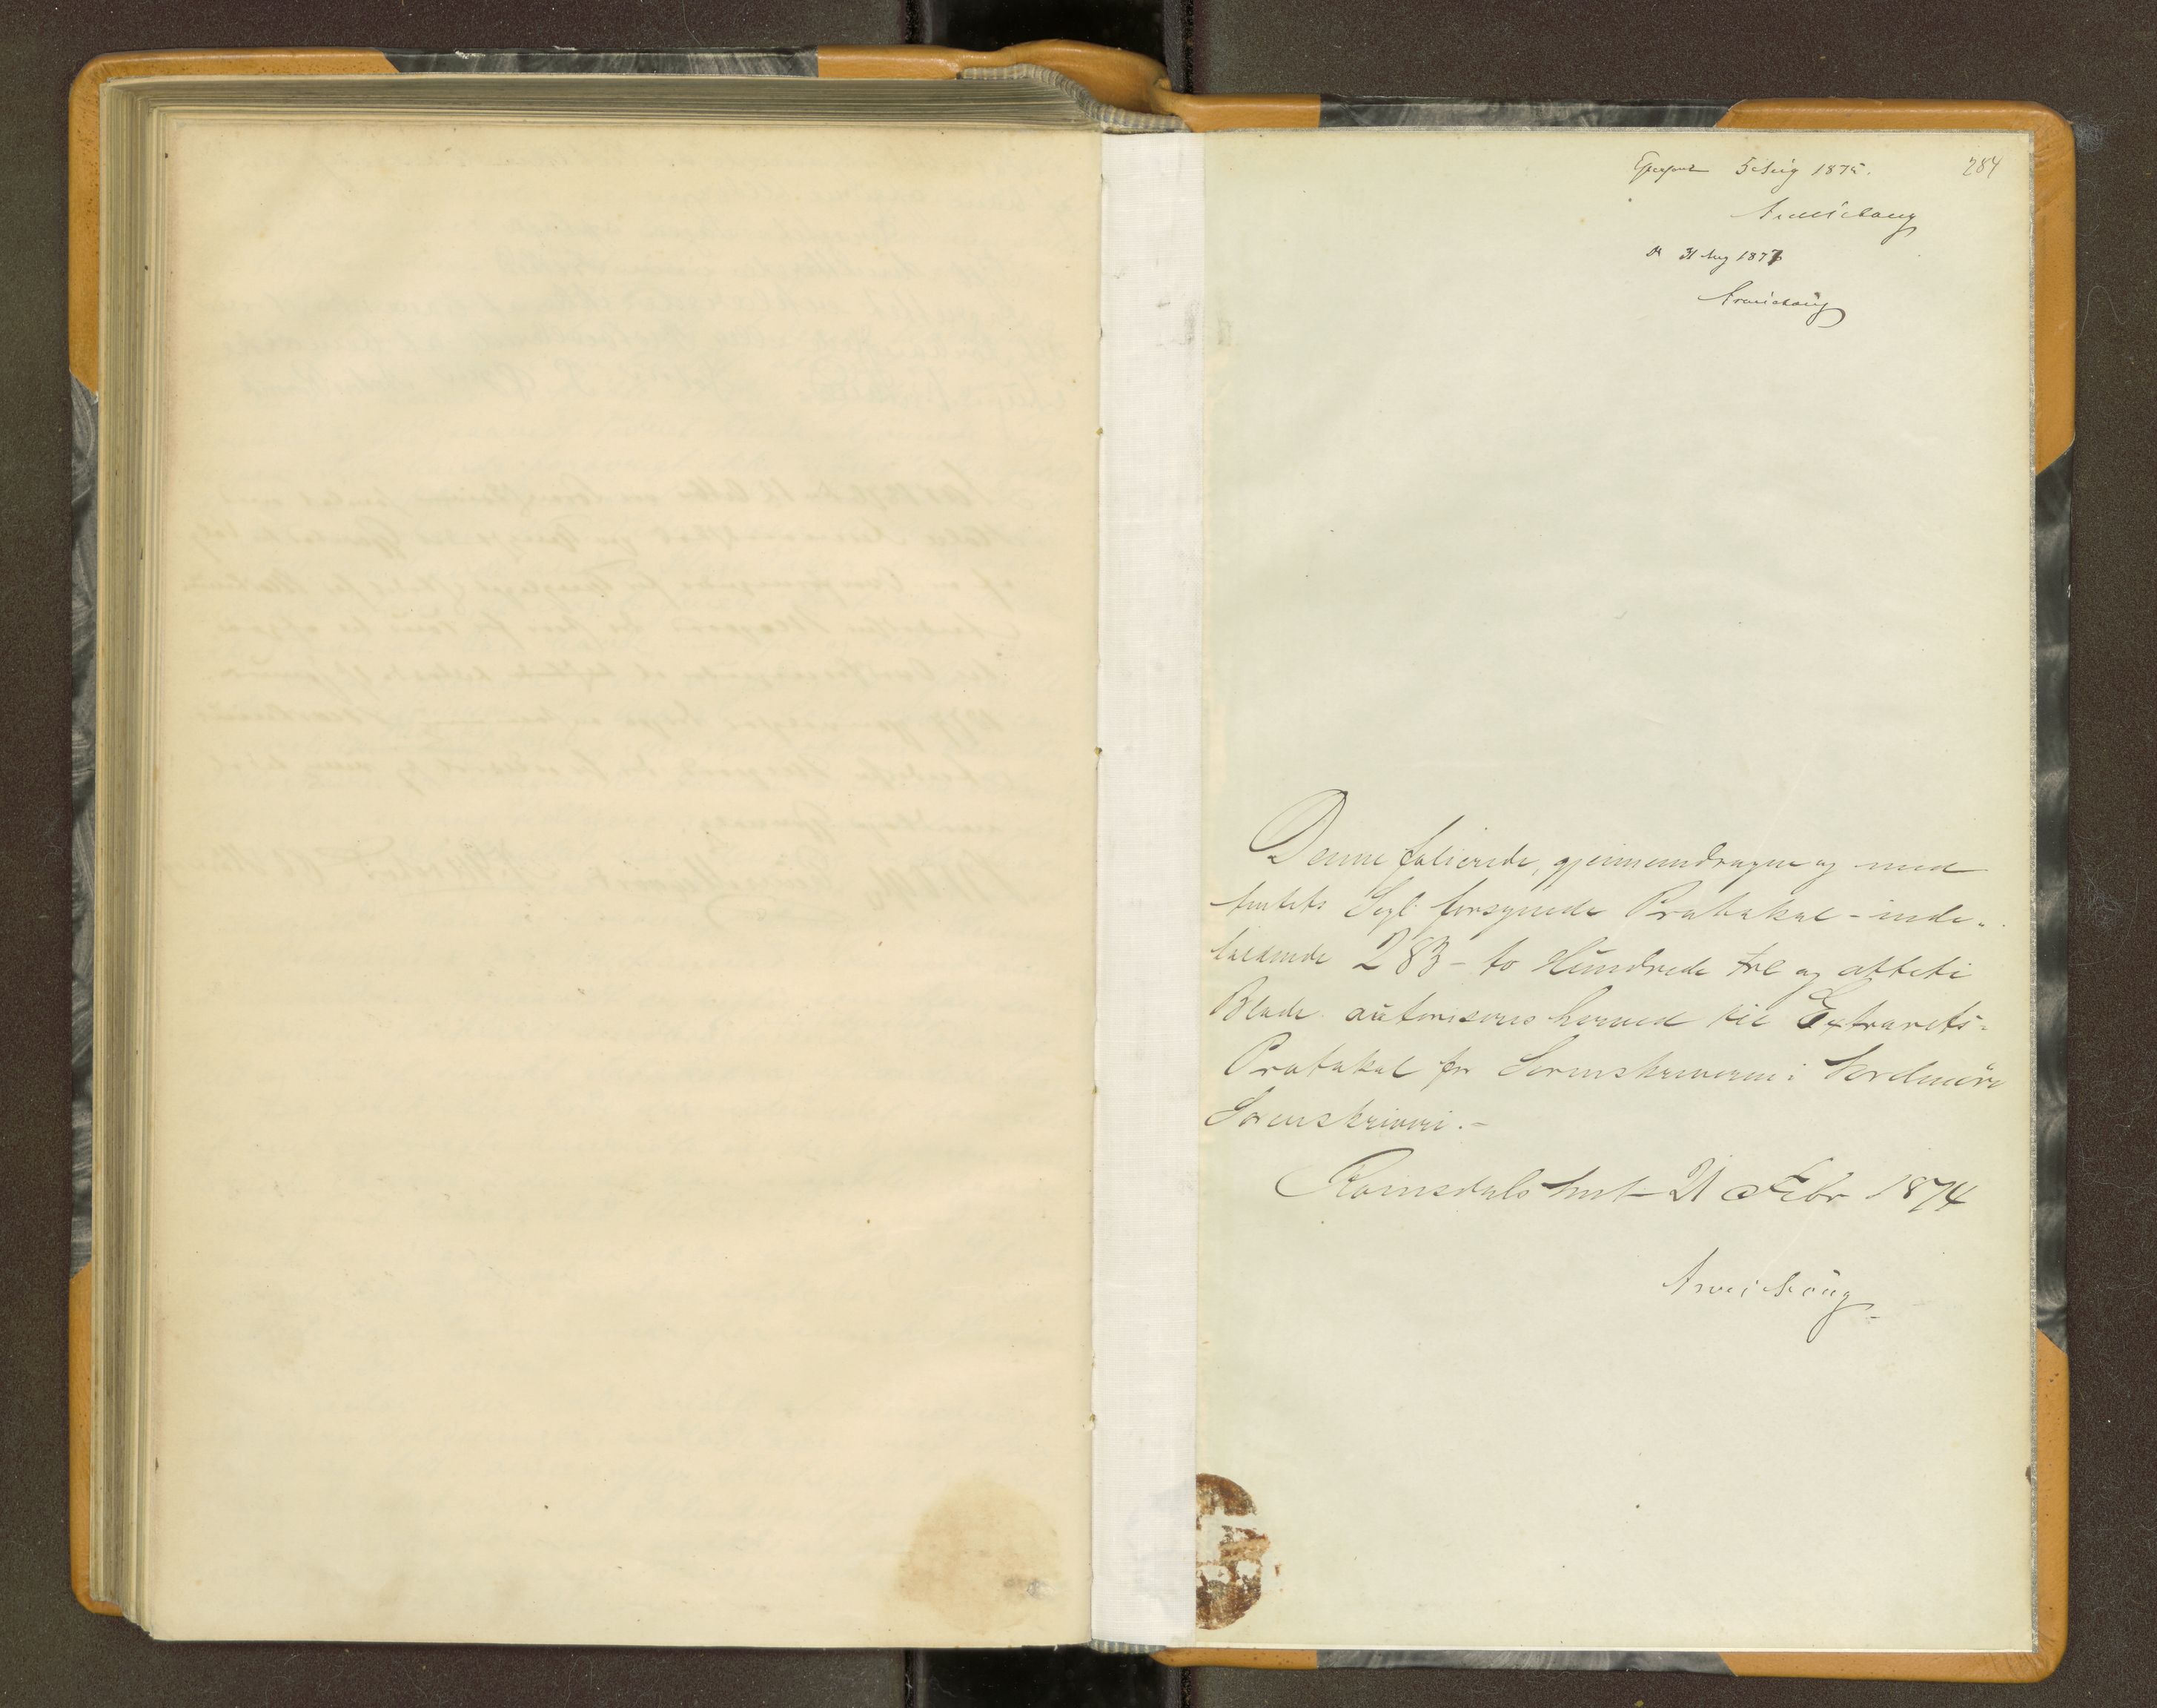 284
Efterseet 5 Aug 1875.
Arveschoug
do 31 Aug 1877
Arveschoug
Denne folierede, gjennemdragne og med
Amtets Segl forsynede Protokol - inde-
holdende 283 - to Hundrede tre og otteti
Blade autoriseres herved til Extrarets-
Protokol for Sorenskriveren i Nordmöre
Sorenskriveri. -
Romsdals Amt 21 Febr 1874
Arveschoug